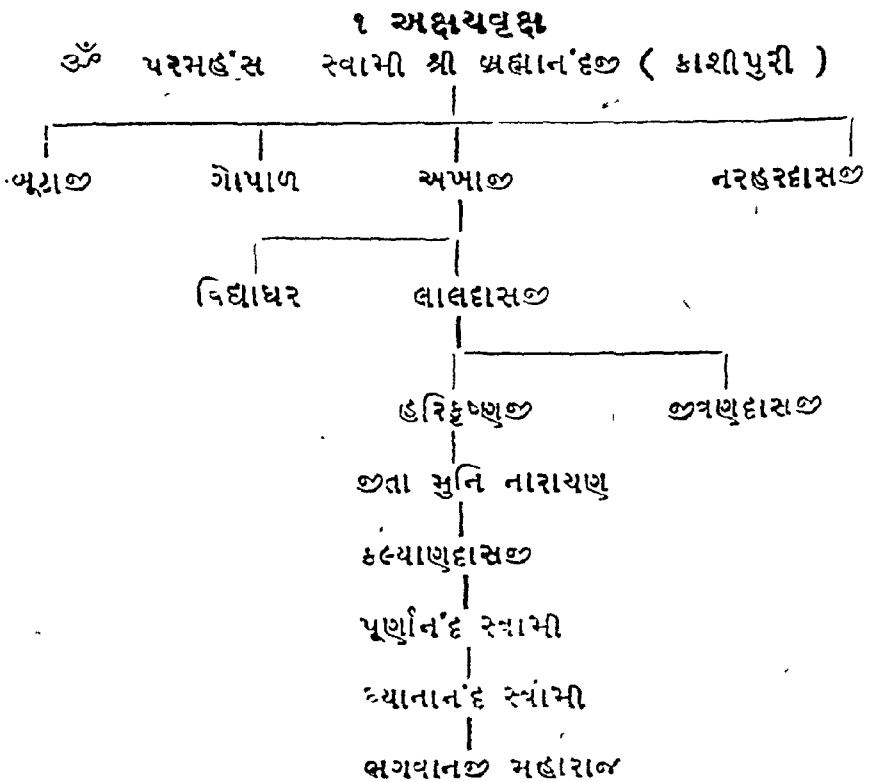 ૧ અક્ષયવૃક્ષ
ૐ પરમહંસ સ્વામી શ્રી બ્રહ્માનંદજી ( કાશીપુરી )
બૂટાજી ગોપાળ અખાજી નરહરદાસજી
વિદ્યાધર લાલદાસજી
હરિકૃષ્ણજી જીવણદાસજી
જીતા મુનિ નારાયણ
કલ્યાણદાસજી
પૂર્ણાનંદ સ્વામી
ધ્યાનાનંદ સ્વામી
ભગવાનજી મહારાજ